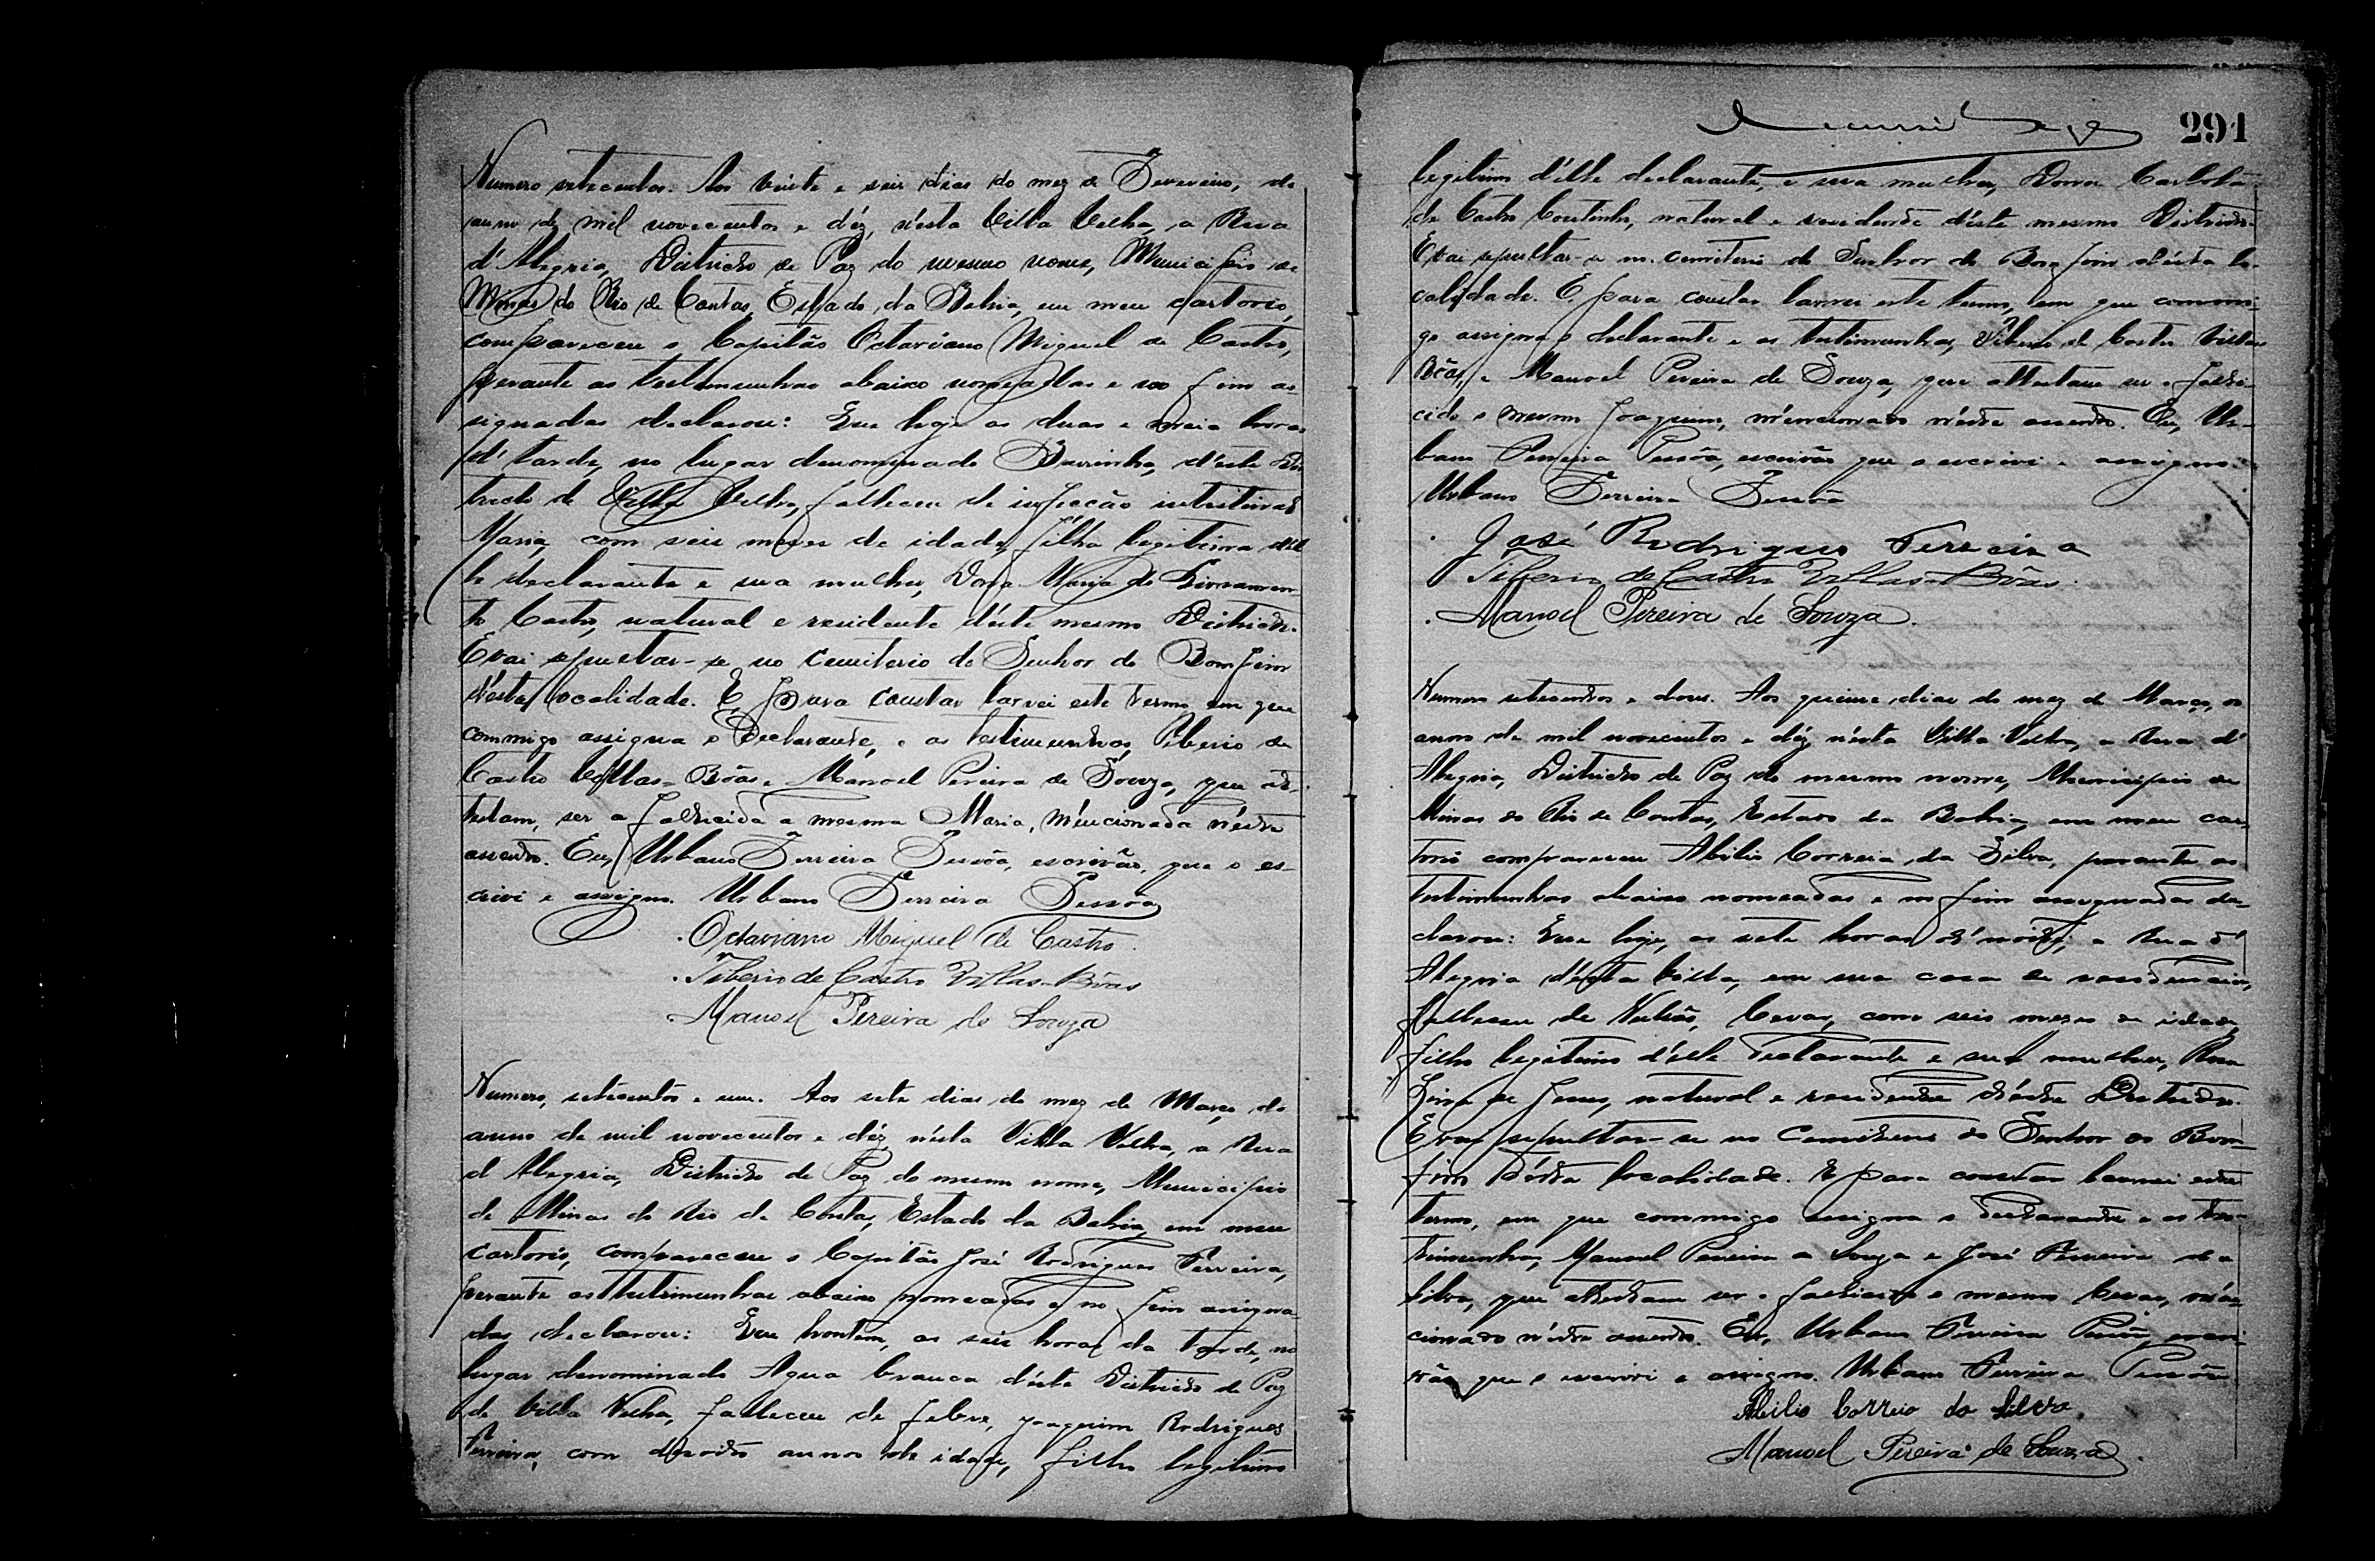 Numero setecentos. Aos vinte e seis dias do mez de Fevereiro, do
anno de mil novecentos e déz, n'ésta Villa Velha, a Rua
d'Alegria, Districto de Paz do mesmo nome, Municipio de
Minas do Rio de Contas, Estado da Bahia, em meu cartorio,
compareceu o Capitão Octaviano Miguel de Castro,
perante as testemunhas abaixo nomeadas e no fim as-
signadas declarou: Que hoje as duas e meia horas
d'tarde, no lugar denominado Barrinha, d'este Dis
tricto de Villa Velha, falleceu de infecção intestinal
Maria, com seis mezes de idade, filha legitima d'el
le declarante e sua mulher, Dona Maria do Firmamen
to Castro, natural e residente d'éste mesmo Districto.
E vai sepultar-se no cemiterio do Senhor do Bomfim
d'ésta localidade. E, para constar lavrei este termo em que
commigo assigna o Declarante, e as testimunhas, Tiberio de
Castro Villas-Bôas e Manoel Pereira de Souza, que at-
testam, ser a fallecida a mesma Maria, méncionada n'éste
assento. Eu, Urbano Ferreira Pessôa, escrivão, que o es-
crivi e assigno. Urbano Ferreira Pessôa
Octaviano Miguel de Castro.
Tiberio de Castro Villas-Bôas
Manoel Pereira de Souza
Numero, setecentos e um. Aos sete dias do mez de Março, do
anno de mil novecentos e déz n'ésta Villa Velha, a Rua
d'Alegria, Districto de Paz do mesmo nome, Municipio
de Minas do Rio de Contas, Estado da Bahia, em meu
cartorio, compareceu o Capitão José Rodrigues Ferreira,
perante as testimunhas abaixo nomeadas e no fim assigna-
das declarou: Que hontem, as seis horas da tarde, no
lugar denominado Agua branca d'éste Districto de Paz
de Villa Velha, falleceu de febre, Joaquim Rodrigues
Ferreira, com annos de idade, filho legitimo
291
legitimo d'élle declarante, e sua mulher, Dona Carlota
de Castro Coutinho, natural e residente d'éste mesmo Districto.
E, vai sepultar-se no cemiterio do Senhor do Bomfim d'ésta lo-
calidade. E, para constar lavrei este termo, em que commi-
go assigna o declarante e as testimunhas, Tiberio de Castro Villas
Bôas, e Manoel Pereira de Souza, que attestam ser o falle-
cido o mesmo Joaquim, méncionado n'éste assento. Eu, Ur-
bano Ferreira Pessôa, escrivão que o escrivi e assigno.
Urbano Ferreira Pessôa
José Rodrigues Ferreira
Tiberio de Castro Villas-Bôas.
Manoel Pereira de Souza.
Numero setecentos e dous. Aos quinze dias do mez de Março, do
anno de mil novecentos e déz n'ésta Villa Velha, a Rua d'
Alegria, Districto de Paz do mesmo nome, Municipio de
Minas do Rio de Contas, Estado da Bahia, em meu car-
torio compareceu Abilio Correia da Silva, perante as
testimunhas abaixo nomeadas e no fim assignadas de-
clarou: Que hoje, as sete horas d'noite, a Rua d'
Alegria d'ésta Villa, em sua casa de residencia,
falleceu de, Cezar, com seis mezes de idade,
filho legitimo d'elle declarante e sua mulher, Rosa
de Jesus, natural e residente d'éste Districto.
E vai sepultar-se no Cemiterio do Senhor do Bom-
fim d'ésta localidade. E para constar lavrei este
termo, em que commigo assigna o declarante e as tes-
timunhas, Manoel Pereira de Souza e José Ferreira da
Silva, que attestam ser o fallecido o mesmo Cezar, mén-
cionado n'éste assento. Eu, Urbano Ferreira Pessôa, escri-
vão que o escrivi e assigno. Urbano Ferreira Pessôa
Abilio Correia da Silva.
Manoel Pereira de Souza.